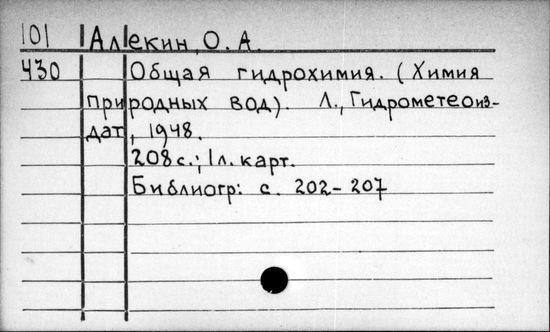 101 Алекин, О. А.
430 Общая гидрохимия. (Химия
природных вод). Л., Гидрометеоиз-
дат, 1948.
208 с.; 1 л. карт.
Библиогр: с. 202-207